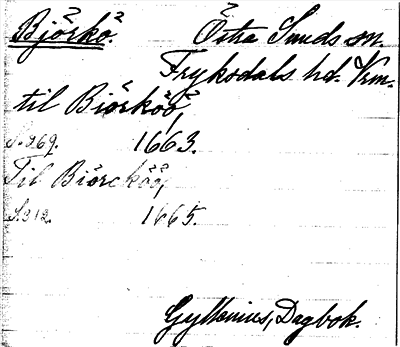 Björkö. Östra Sunds sn.
Fryksdals hd. Vrm.
til Biörköö,
S. 269. 1663.
Til Biörcköö,
S. 312. 1665.
Gyllenius, Dagbok.